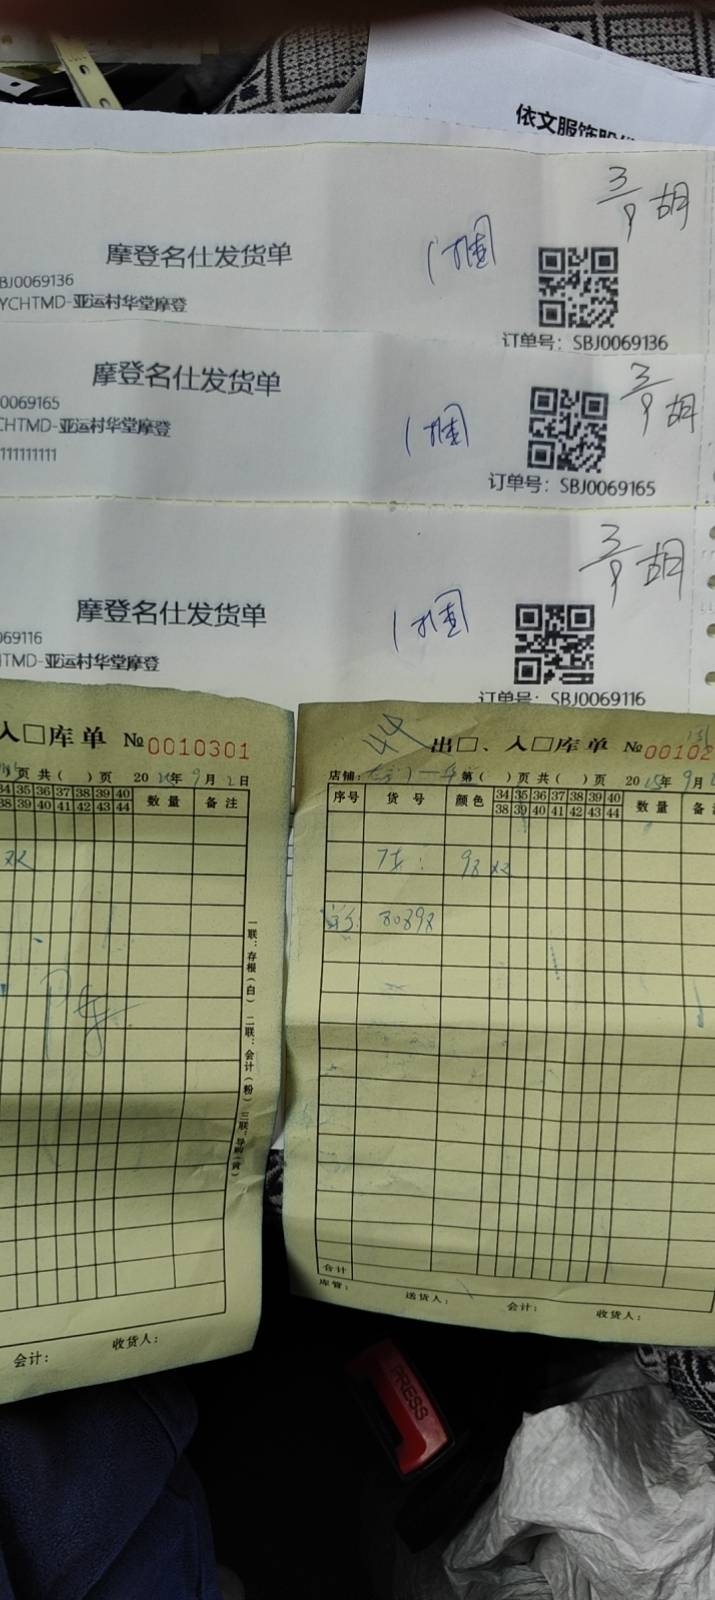 依文服饰股份
3/9 胡
摩登名仕发货单
1捆
BJ0069136
YCHTMD-亚运村华堂摩登
订单号：SBJ0069136
3/9 胡
摩登名仕发货单
1捆
0069165
CHTMD-亚运村华堂摩登
111111111
订单号：SBJ0069165
3/9 胡
摩登名仕发货单
1捆
069116
HTMD-亚运村华堂摩登
订单号：SBJ0069116
入□库单 №0010301
页 共（ ）页 20 年9月2日
34 35 36 37 38 39 40 数量 备注
38 39 40 41 42 43 44
双
一联：存根（白） 二联：会计（粉） 三联：导购（黄）
会计： 收货人：
出□、入□库单 №00102
店铺： 第（ ）页 共（ ）页 2025年9月
序号 货号 颜色 34 35 36 37 38 39 40 数量 备注
38 39 40 41 42 43 44
98双
80898
合计
库管： 送货人： 会计： 收货人：
PRESS